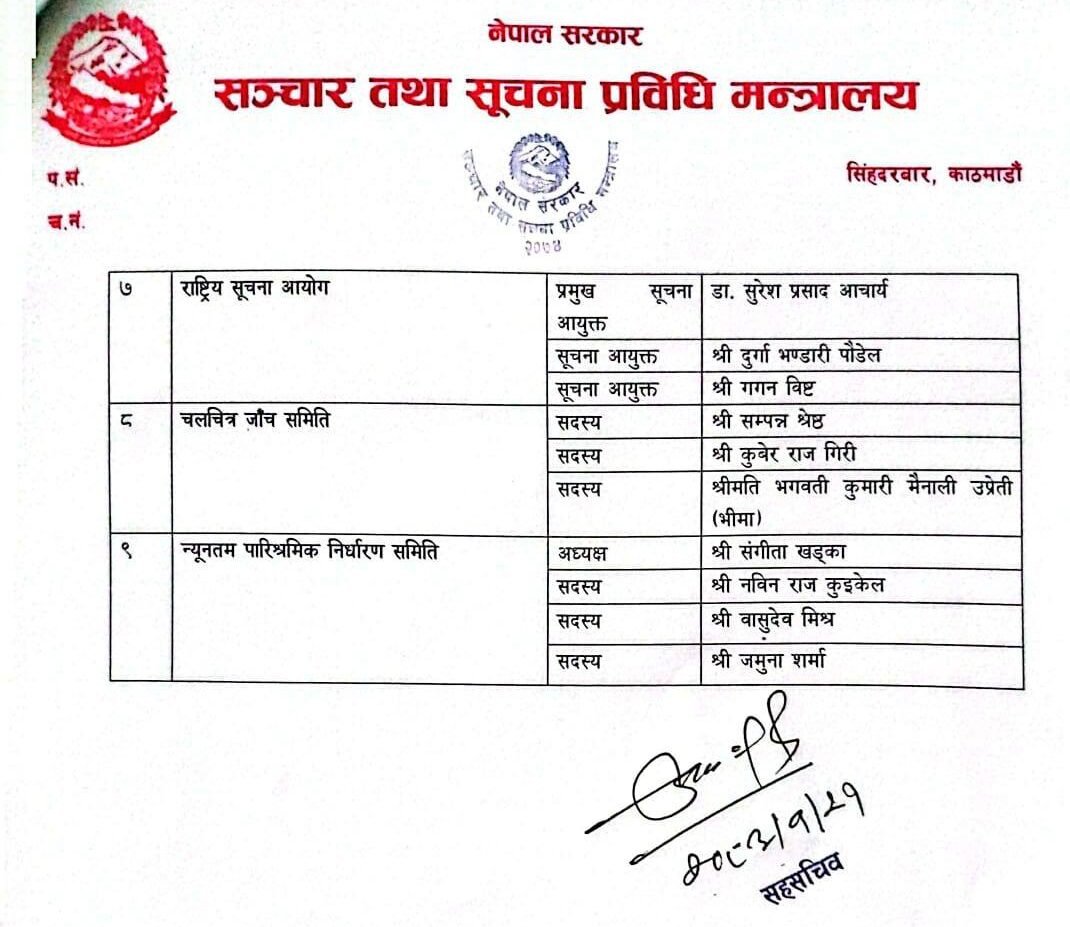 नेपाल सरकार
सञ्चार तथा सूचना प्रविधि मन्त्रालय
प.सं.
च.नं.
सिंहदरबार, काठमाडौं
नेपाल सरकार
सञ्चार तथा सूचना प्रविधि मन्त्रालय
२०७४
७ राष्ट्रिय सूचना आयोग प्रमुख सूचना डा. सुरेश प्रसाद आचार्य
आयुक्त
सूचना आयुक्त श्री दुर्गा भण्डारी पौडेल
सूचना आयुक्त श्री गगन विष्ट
८ चलचित्र जाँच समिति सदस्य श्री सम्पन्न श्रेष्ठ
सदस्य श्री कुवेर राज गिरी
सदस्य श्रीमति भगवती कुमारी मैनाली उप्रेती
(भीमा)
९ न्यूनतम पारिश्रमिक निर्धारण समिति अध्यक्ष श्री संगीता खड्का
सदस्य श्री नविन राज कुइकेल
सदस्य श्री वासुदेव मिश्र
सदस्य श्री जमुना शर्मा
२०८३/१/२१
सहसचिव